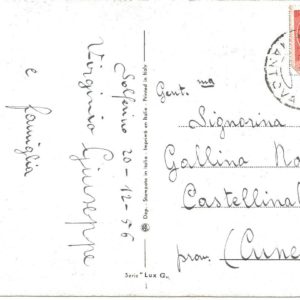 Solferino 20-12-56
Virginio Giuseppe
e famiglia
Dep. Stampato in Italia - Imprimé en Italie - Printed in Italy
Gent.ma
Signorina
Gallina Ro
Castellina
prov. (Cune
Serie "Lux G.
1